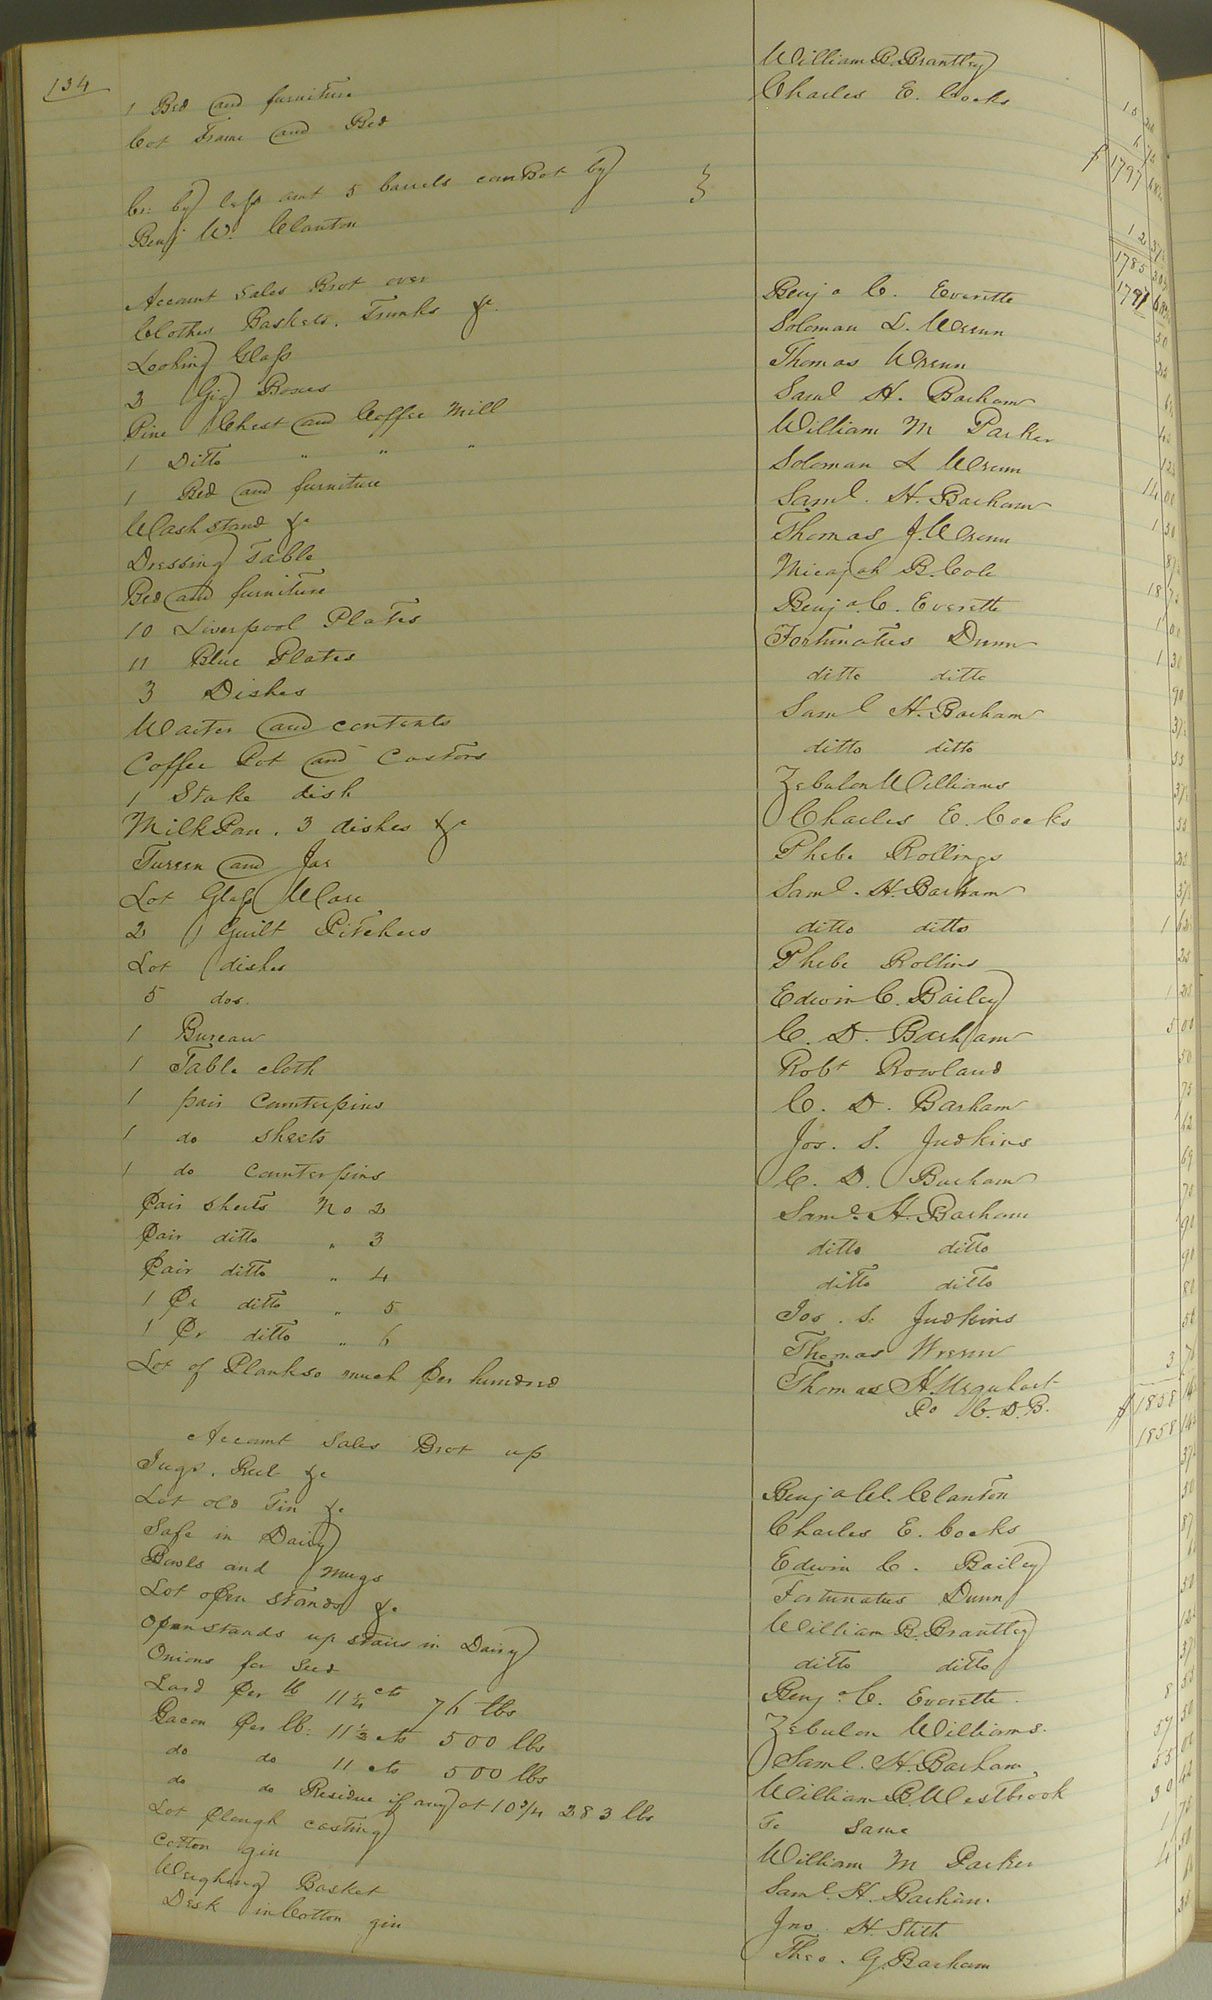 134
1 Bed and furniture William B. Brantley 15
Cot Frame and Bed Charles E. Cocks 6
$ 1797
Cr: by less amt 5 barrels corn Bot by }
Benj W. Clanton 12 37½
1785
Account Sales Brot over 1797
Clothes Baskets, Trunks &c. Benja C. Everette 50
Looking Glass Soloman L. Wrenn 25
2 Gig Boxes Thomas Wrenn
Pine Chest and Coffee Mill Saml H. Barham
1 Ditto " " " William M Parker
1 Bed and furniture Soloman L Wrenn 14 00
Wash stand &c Saml. H. Barham 1 50
Dressing Table Thomas J. Wrenn
Bed and furniture Micajah B. Cole 18
10 Liverpool Plates Benja. C. Everette 1
11 Blue Plates Fortunatus Dunn 1 30
3 Dishes ditto ditto 90
Waiter and contents Saml H. Barham 37½
Coffee Pot and Castors ditto ditto 55
1 Stake dish Zebulon Williams 37½
Milk Pan, 3 dishes &c Charles E. Cocks 50
Tureen and Jar Phebe Rollings 25
Lot Glass Ware Saml. H. Barham 37½
2 Guilt Pitchers ditto ditto 1
Lot dishes Phebe Rollins 25
5 dos. Edwin C. Bailey 1 25
1 Bureau C. D. Barham 5 00
1 Table cloth Robt Rowland 50
1 pair Counterpins C. D. Barham 75
1 do sheets Jos. S. Judkins 62
1 do Counterpins C. D. Barham 69
Pair sheets No 2 Saml. H. Barham 70
Pair ditto " 3 ditto ditto 90
Pair ditto " 4 ditto ditto 90
1 Pr ditto " 5 Jos. S. Judkins 80
1 Pr ditto " 6 Thomas Wrenn 50
Lot of Plank so much Per hundred Thomas H. Urquhart 3
Po C. D. B. $ 1858
Account Sales Brot up 1858
Jugs, Reel &c Benja W. Clanton 37½
Lot old Tin &c Charles E. Cocks 50
Safe in Dairy Edwin C. Bailey
Bowls and Mugs Fortunatus Dunn
Lot open stands &c William B. Brantley 50
Open stands up stairs in Dairy ditto ditto
Onions for Seed Benja C. Everette 37½
Lard Per lb 11¼ cts 76 lbs Zebulon Williams. 8
Bacon Per lb: 11½ cts 500 lbs Saml. H. Barham, 57 50
do do 11 cts 500 lbs William B. Westbrook 55 00
do do Residue if any at 10¾ 283 lbs To Same 30 42
Lot Plough casting William M Parker 1
Cotton gin Saml. H. Barham. 4 50
Weighing Basket Jno H. Stith
Desk in Cotton gin Theo. G. Barham